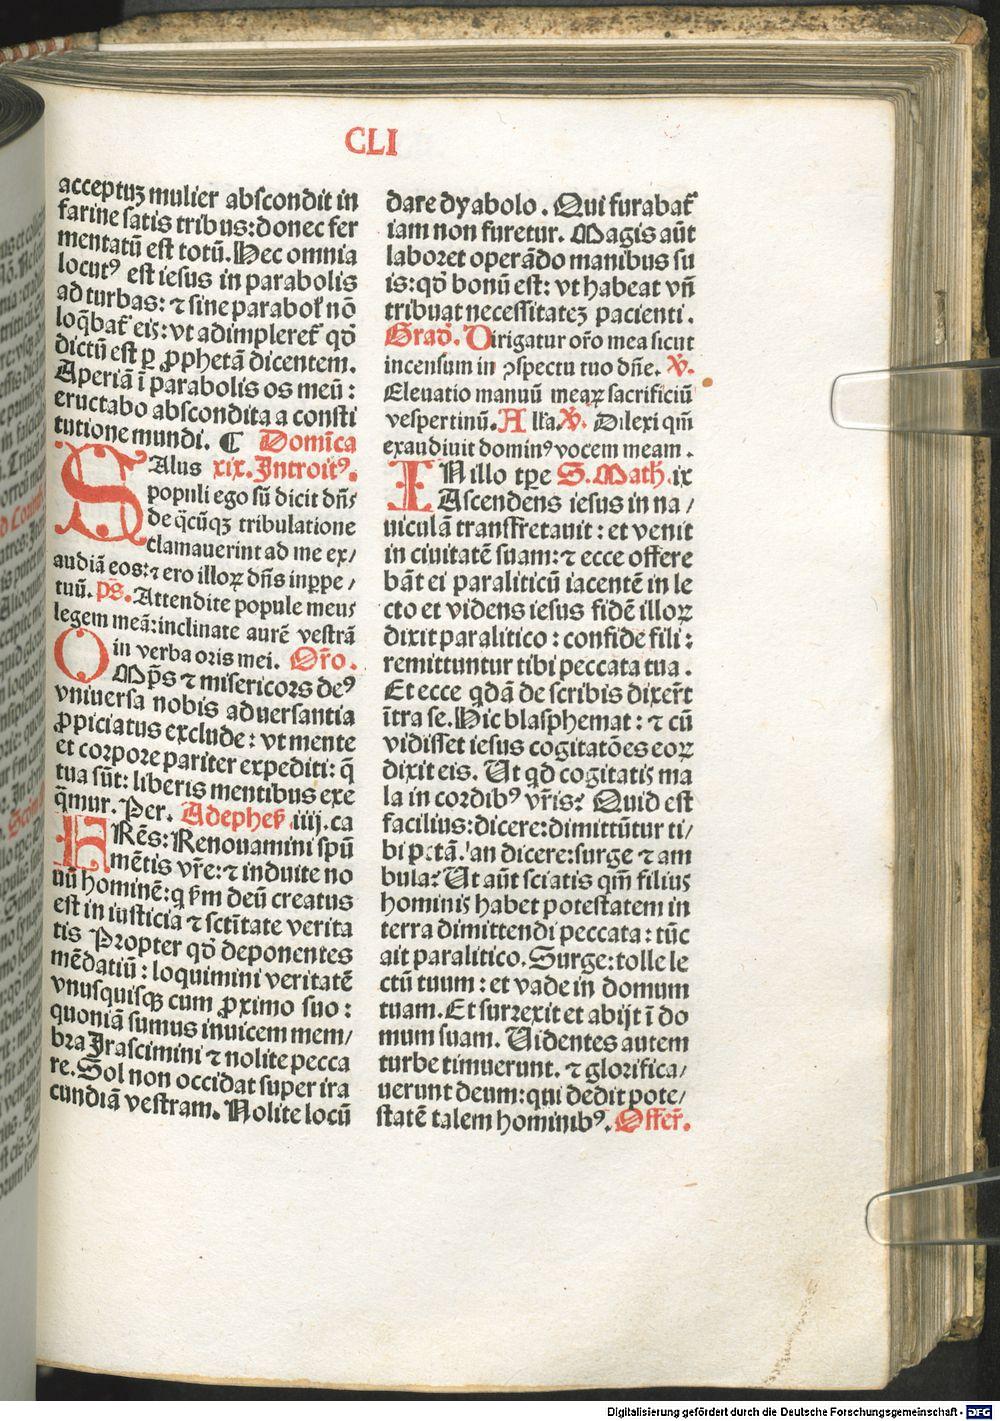 CLI
acceptuꝫ mulier abscondit in
farine satis tribus: donec fer
mentatū est totū. Hec omnia
locutꝰ est iesus in parabolis
ad turbas: ⁊ sine parabol' nō
loq̄bat' eis: vt adimpleret' qđ
dictū est ꝑ ꝓphetā dicentem.
Aperiā ī parabolis os meū:
eructabo abscondita a consti
tutione mundi. ¶ Domīca
Salus xix. Introitꝰ.
populi ego sū dicit dn̄s
de q̄cūqꝫ tribulatione
clamauerint ad me ex/
audiā eos: ⁊ ero illoꝝ dn̄s inꝑpe/
tuū. ps̄. Attendite popule meus
legem meā: inclinate aurē vestrā
in verba oris mei. Or̄o.
Omps̄ ⁊ misericors deꝰ
vniuersa nobis aduersantia
ꝓpiciatus exclude: vt mente
et corpore pariter expediti: q̄
tua sūt: liberis mentibus exe
q̄mur. Per. Ad ephes̄. iiij. ca
FRēs: Renouamini spū
mētis vr̄e: ⁊ induite no
uū hominē: q ẜm deū creatus
est in iusticia ⁊ sctītate verita
tis Propter qđ deponentes
mēdatiū: loquimini veritatē
vnusquisqꝫ cum ꝓximo suo:
quoniā sumus inuicem mem/
bra Irascimini ⁊ nolite pecca
re. Sol non occidat super ira
cundiā vestram. Nolite locū
dare dyabolo. Qui furabat'
iam non furetur. Magis aūt
laboret operādo manibus su
is: qđ bonū est: vt habeat vn̄
tribuat necessitateꝫ pacienti.
Građ. Dirigatur or̄o mea sicut
incensum in ꝯspectu tuo dn̄e. ℣.
Eleuatio manuū meaꝝ sacrificiū
vespertinū. Alľa ℣. Dilexi qm̄
exaudiuit dominꝰ vocem meam.
IN illo tp̄e S. Math. ix
Ascendens iesus in na/
uiculā transfretauit: et venit
in ciuitatē suam: ⁊ ecce offere
bāt ei paraliticū iacentē in le
cto et videns iesus fidē illoꝝ
dixit paralitico: confide fili:
remittuntur tibi peccata tua.
Et ecce qdā de scribis dixer̄t
ītra se. Hic blasphemat: ⁊ cū
vidisset iesus cogitatōes eoꝝ
dixit eis. Ut qd cogitatis ma
la in cordibꝰ vr̄is? Quid est
facilius: dicere: dimittūtur ti/
bi pctā: an dicere: surge ⁊ am
bula? Ut aūt sciatis qm̄ filius
hominis habet potestatem in
terra dimittendi peccata: tūc
ait paralitico. Surge: tolle le
ctū tuum: et vade in domum
tuam. Et surrexit et abijt ī do
mum suam. Uidentes autem
turbe timuerunt. ⁊ glorifica/
uerunt deum: qui dedit pote/
statē talem hominibꝰ. Offer̄.
Digitalisierung gefördert durch die Deutsche Forschungsgemeinschaft - DFG